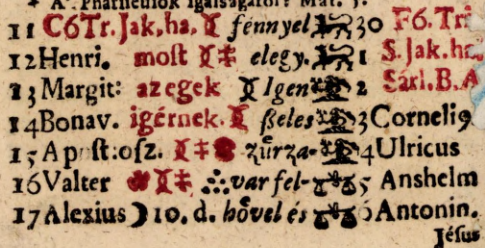 A. Phariſeuſok igaſságáról: Mat. 5.
11 C6Tr. Jak, ha. fénnyel 30 F6. Tri
12 Henri. moſt elegy. 1 S. Jak. ha.
13 Margit: azegek Igen 2 Sárl. B. A
14 Bonav. igérnek. ßeles 3 Corneli9
15 Apoſt: oſz. zůrza- 4 Ulricus
16 Valter var fel- 5 Anshelm
17 Alexius 10. d. hővel és 6 Antonin.
Jéſus